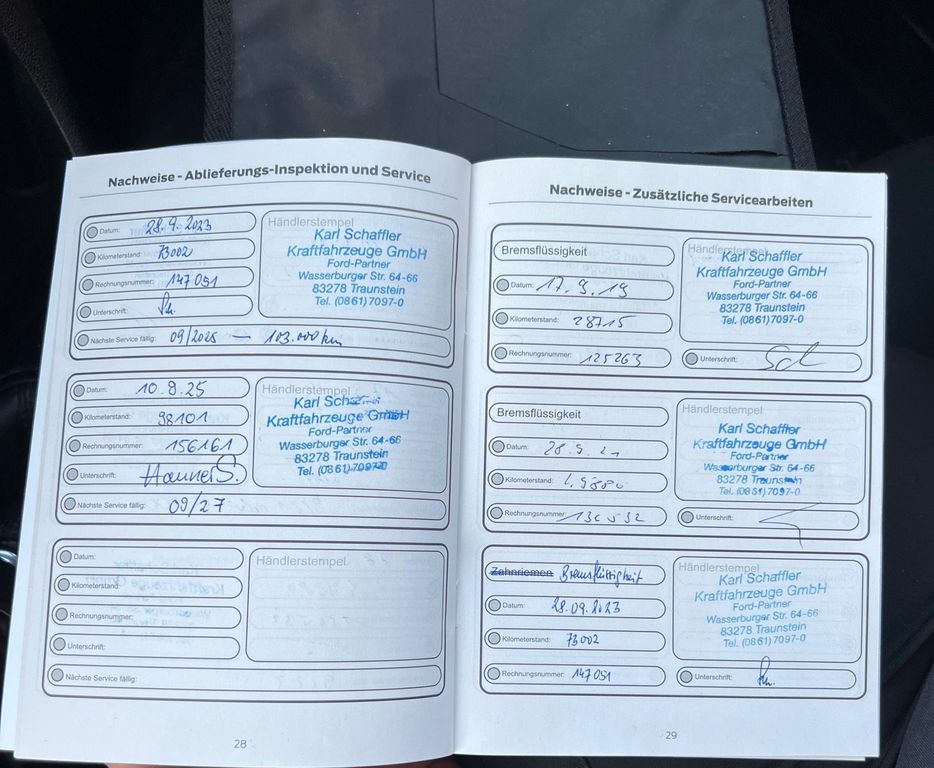 Nachweise - Ablieferungs-Inspektion und Service
Datum: 28.9.2023
Kilometerstand: 73002
Rechnungsnummer: 147051
Unterschrift:
Nächste Service fällig: 09/2025 — 103.000 km
Händlerstempel
Karl Schaffler
Kraftfahrzeuge GmbH
Ford-Partner
Wasserburger Str. 64-66
83278 Traunstein
Tel. (0861) 7097-0
Datum: 10.9.25
Kilometerstand: 98101
Rechnungsnummer: 156161
Unterschrift:
Nächste Service fällig: 09/27
Händlerstempel
Karl
Kraftfahrzeuge GmbH
Ford-Partner
Wasserburger Str. 64-66
83278 Traunstein
Tel. (0861) 7097-0
Datum:
Kilometerstand:
Rechnungsnummer:
Unterschrift:
Nächste Service fällig:
Händlerstempel
28
Nachweise - Zusätzliche Servicearbeiten
Bremsflüssigkeit
Datum: 17.9.19
Kilometerstand: 28715
Rechnungsnummer: 125263
Händlerstempel
Karl Schaffler
Kraftfahrzeuge GmbH
Ford-Partner
Wasserburger Str. 64-66
83278 Traunstein
Tel. (0861) 7097-0
Unterschrift:
Bremsflüssigkeit
Datum:
Kilometerstand:
Rechnungsnummer:
Händlerstempel
Karl Schaffler
Kraftfahrzeuge GmbH
Ford-Partner
Wasserburger Str. 64-66
83278 Traunstein
Tel. (0861) 7097-0
Unterschrift:
Zahnriemen Bremsflüssigkeit
Datum: 28.09.2023
Kilometerstand: 73002
Rechnungsnummer: 147051
Händlerstempel
Karl Schaffler
Kraftfahrzeuge GmbH
Ford-Partner
Wasserburger Str. 64-66
83278 Traunstein
Tel. (0861) 7097-0
Unterschrift:
29